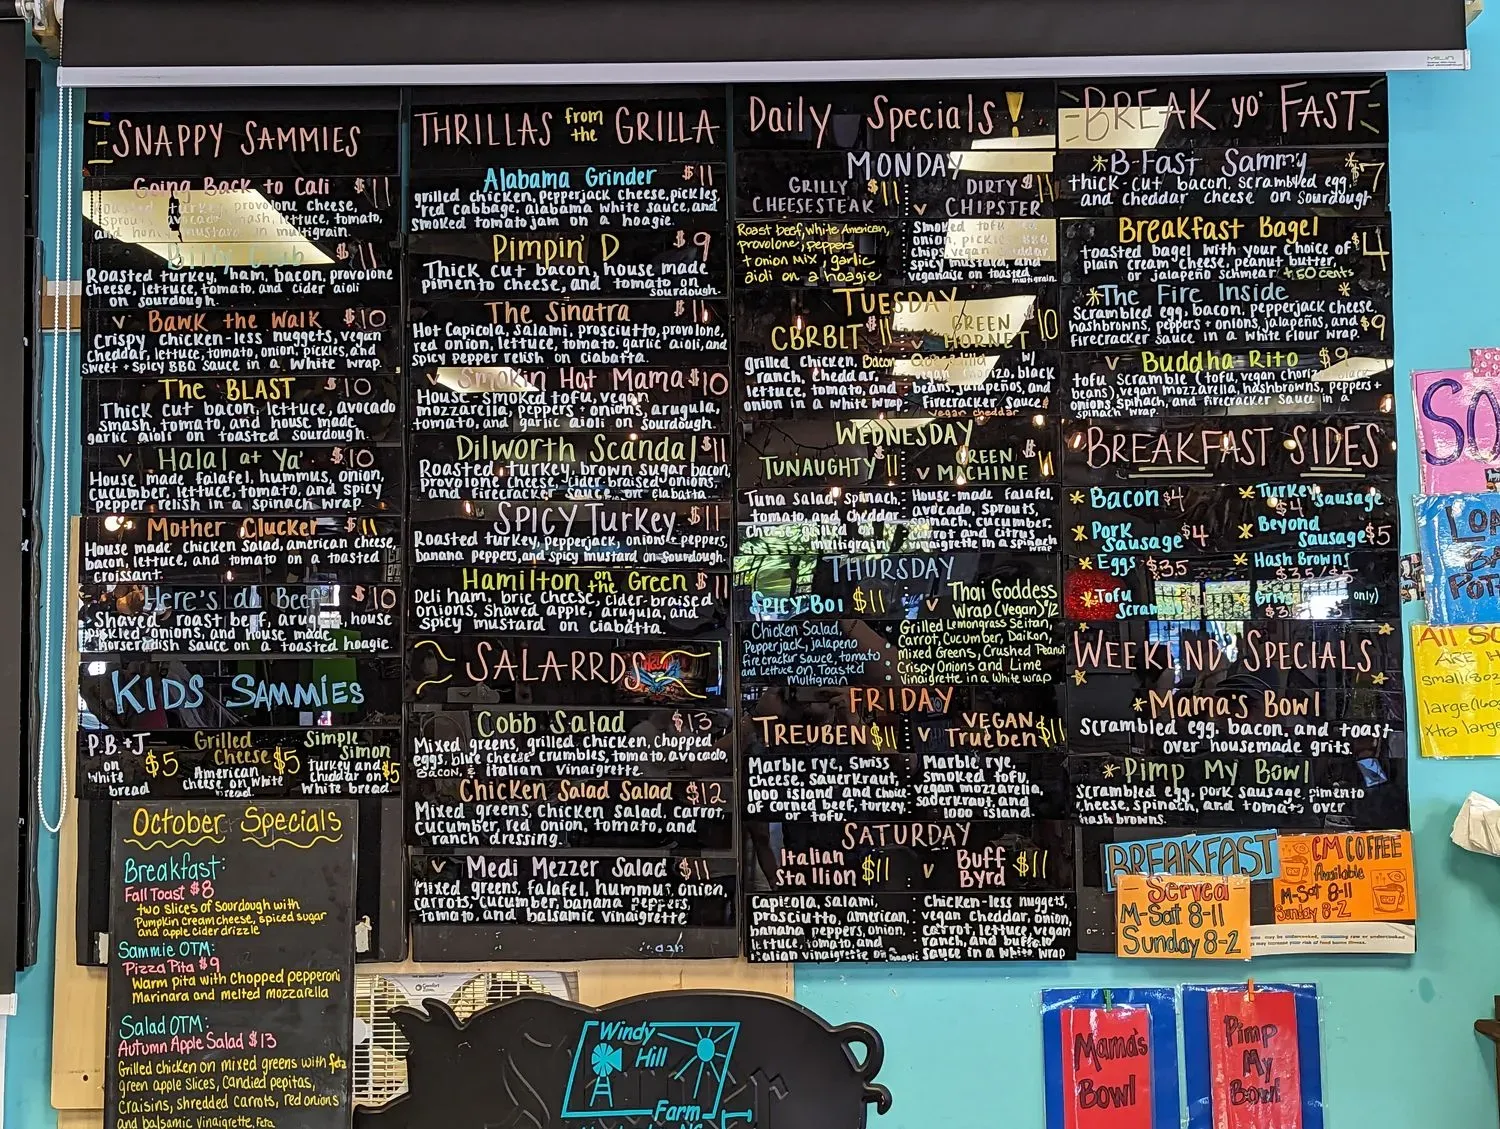 SNAPPY SAMMIES
Going Back to Cali $11
turkey, provolone cheese,
sprouts, avocado mash, lettuce, tomato,
and honey mustard on multigrain.
Billy Club $11
Roasted turkey, ham, bacon, provolone
cheese, lettuce, tomato, and cider aioli
on sourdough.
v Bawk the Walk $10
Crispy chicken-less nuggets, vegan
cheddar, lettuce, tomato, onion, pickles, and
sweet + spicy BBQ sauce in a white wrap.
The BLAST $10
Thick cut bacon, lettuce, avocado
smash, tomato, and house made
garlic aioli on toasted sourdough.
v Halal at Ya' $10
House made falafel, hummus, onion,
cucumber, lettuce, tomato, and spicy
pepper relish in a spinach wrap.
Mother Clucker $11
House made chicken salad, american cheese,
bacon, lettuce, and tomato on a toasted
croissant.
Here's da Beef $10
Shaved roast beef, arugula, house
pickled onions, and house made
horseradish sauce on a toasted hoagie.
KIDS SAMMIES
P.B.+J
on
white
bread
$5
Grilled
Cheese $5
American
cheese on white
bread
Simple
Simon
Turkey and
cheddar on $5
white bread.
October Specials
Breakfast:
Fall Toast $8
two slices of Sourdough with
Pumpkin Cream cheese, spiced sugar
and apple cider drizzle
Sammie OTM:
Pizza Pita $9
Warm pita with chopped pepperoni
Marinara and melted mozzarella
Salad OTM:
Autumn Apple Salad $13
Grilled chicken on mixed greens with feta
green apple slices, Candied pepitas,
Craisins, shredded carrots, red onions
and balsamic vinaigrette. Feta
THRILLAS from the GRILLA
Alabama Grinder $11
grilled chicken, pepperjack cheese, pickles,
red cabbage, alabama white sauce, and
smoked tomato jam on a hoagie.
Pimpin' D $9
Thick cut bacon, house made
pimento cheese, and tomato on
sourdough.
The Sinatra $11
Hot Capicola, salami, prosciutto, provolone,
red onion, lettuce, tomato, garlic aioli, and
spicy pepper relish on ciabatta.
v Smokin Hot Mama $10
House-smoked tofu, vegan
mozzarella, peppers + onions, arugula,
tomato, and garlic aioli on sourdough.
Dilworth Scandal $11
Roasted turkey, brown sugar bacon,
provolone cheese, cider-braised onions,
and firecracker sauce on ciabatta.
SPICY Turkey $11
Roasted turkey, pepperjack, onions + peppers,
banana peppers, and spicy mustard on sourdough.
Hamilton on the Green $11
Deli ham, brie cheese, cider-braised
onions, shaved apple, arugula, and
spicy mustard on ciabatta.
SALARRDS
Cobb Salad $13
Mixed greens, grilled chicken, chopped
eggs, blue cheese crumbles, tomato, avocado,
Bacon, & Italian vinaigrette.
Chicken Salad Salad $12
Mixed greens, Chicken Salad, carrot,
cucumber, red onion, tomato, and
ranch dressing.
v Medi Mezzer Salad $11
Mixed greens, falafel, hummus, onion,
carrots, cucumber, banana peppers,
tomato, and balsamic vinaigrette
Windy
Hill
Farm
Daily Specials!
MONDAY
GRILLY
CHEESESTEAK $11
Roast beef, white American,
provolone, peppers
+ onion mix, garlic
aioli on a hoagie
v DIRTY
CHIPSTER
Smoked tofu, red
onion, pickle, BBQ
chips, vegan cheddar,
spicy mustard, and
veganaise on toasted
multigrain.
TUESDAY
CBRBLT $11
grilled chicken, Bacon
ranch, cheddar,
lettuce, tomato, and
onion in a white wrap.
v GREEN
HORNET 10
w/
vegan chorizo, black
beans, jalapeños, and
Firecracker Sauce
vegan cheddar
WEDNESDAY
TUNAUGHTY 11
Tuna Salad, spinach,
tomato, and cheddar
cheese grilled on
multigrain
v GREEN
MACHINE 11
House-made falafel,
avocado, sprouts,
spinach, cucumber,
carrot and citrus
vinaigrette in a spinach
wrap
THURSDAY
SPICY BOI $11
Chicken Salad,
Pepperjack, jalapeno
Firecracker sauce, tomato
and Lettuce on Toasted
Multigrain
v Thai Goddess
Wrap (Vegan) $12
Grilled Lemongrass Seitan,
Carrot, Cucumber, Daikon,
Mixed Greens, Crushed Peanut
Crispy Onions and Lime
Vinaigrette in a White Wrap
FRIDAY
TREUBEN $11
Marble rye, Swiss
Cheese, Sauerkraut,
1000 island and choice
of corned beef, turkey
or tofu.
v VEGAN
Trueben $11
Marble rye,
smoked tofu,
vegan mozzarella,
sauerkraut, and
1000 island.
SATURDAY
Italian
Stallion $11
Capicola, salami,
prosciutto, american,
banana peppers, onion,
lettuce, tomato, and
Italian vinaigrette on hoagie
v Buff
Byrd $11
Chicken-less nuggets,
vegan cheddar, onion,
carrot, lettuce, vegan
ranch, and buffalo
sauce in a white wrap
BREAK yo' FAST
*B-Fast Sammy $7
thick-cut bacon, scrambled egg,
and cheddar cheese on sourdough
Breakfast Bagel $4
toasted bagel with your choice of
plain cream cheese, peanut butter,
or jalapeño schmear +50 cents
*The Fire Inside
Scrambled egg, bacon, pepperjack cheese,
hashbrowns, peppers + onions, jalapeños, and $9
firecracker sauce in a white flour wrap.
v Buddha-Rito $9
tofu scramble (tofu, vegan chorizo, black
beans), vegan mozzarella, hashbrowns, peppers +
onions, spinach, and firecracker sauce in a
spinach wrap.
BREAKFAST SIDES
* Bacon $4
* Turkey Sausage
$4
* Pork
Sausage $4
* Beyond
Sausage $5
* Eggs $3.5
* Hash Browns
*Tofu
Scramble
* Grits only)
WEEKEND SPECIALS
*Mama's Bowl
Scrambled egg, bacon, and toast
over housemade grits.
*Pimp My Bowl
Scrambled egg, pork sausage, pimento
cheese, spinach, and tomato over
hash browns.
BREAKFAST
Served
M-Sat 8-11
Sunday 8-2
CM COFFEE
Available
M-Sat 8-11
Sunday 8-2
Mama's
Bowl
Pimp
My
Bowl
All SO
ARE H
small(8oz
large(16o
Xtra large